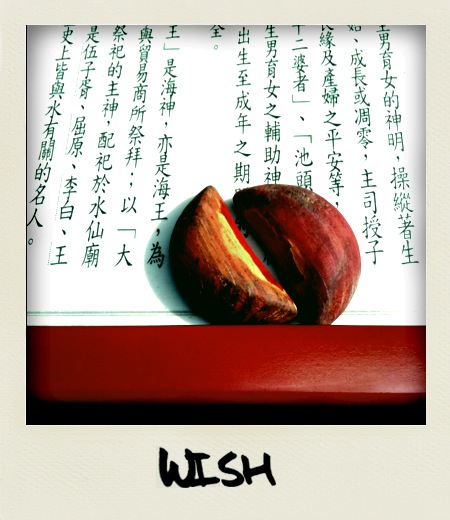 生男育女的神明，操縱著生
始、成長或凋零，主司授子
良緣及產婦之平安等，
十二婆者」、「池頭
生男育女之輔助神
出生至成年之期
全。
王」是海神，亦是海王，為
與貿易商所祭拜；，以「大
祭祀的主神，配祀於水仙廟
是伍子胥、屈原、李白、王
史上皆與水有關的名人。
WISH